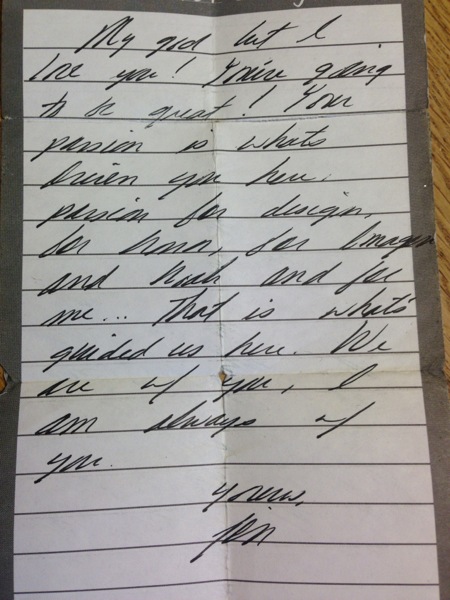 My god but I
love you! You're going
to be great! Your
passion is what's
driven you here.
passion for design,
for , for Imogen
and Noah and for
me... That is what's
guided us here. We
are w/ you, I
am always w/
you.
yours,
jen